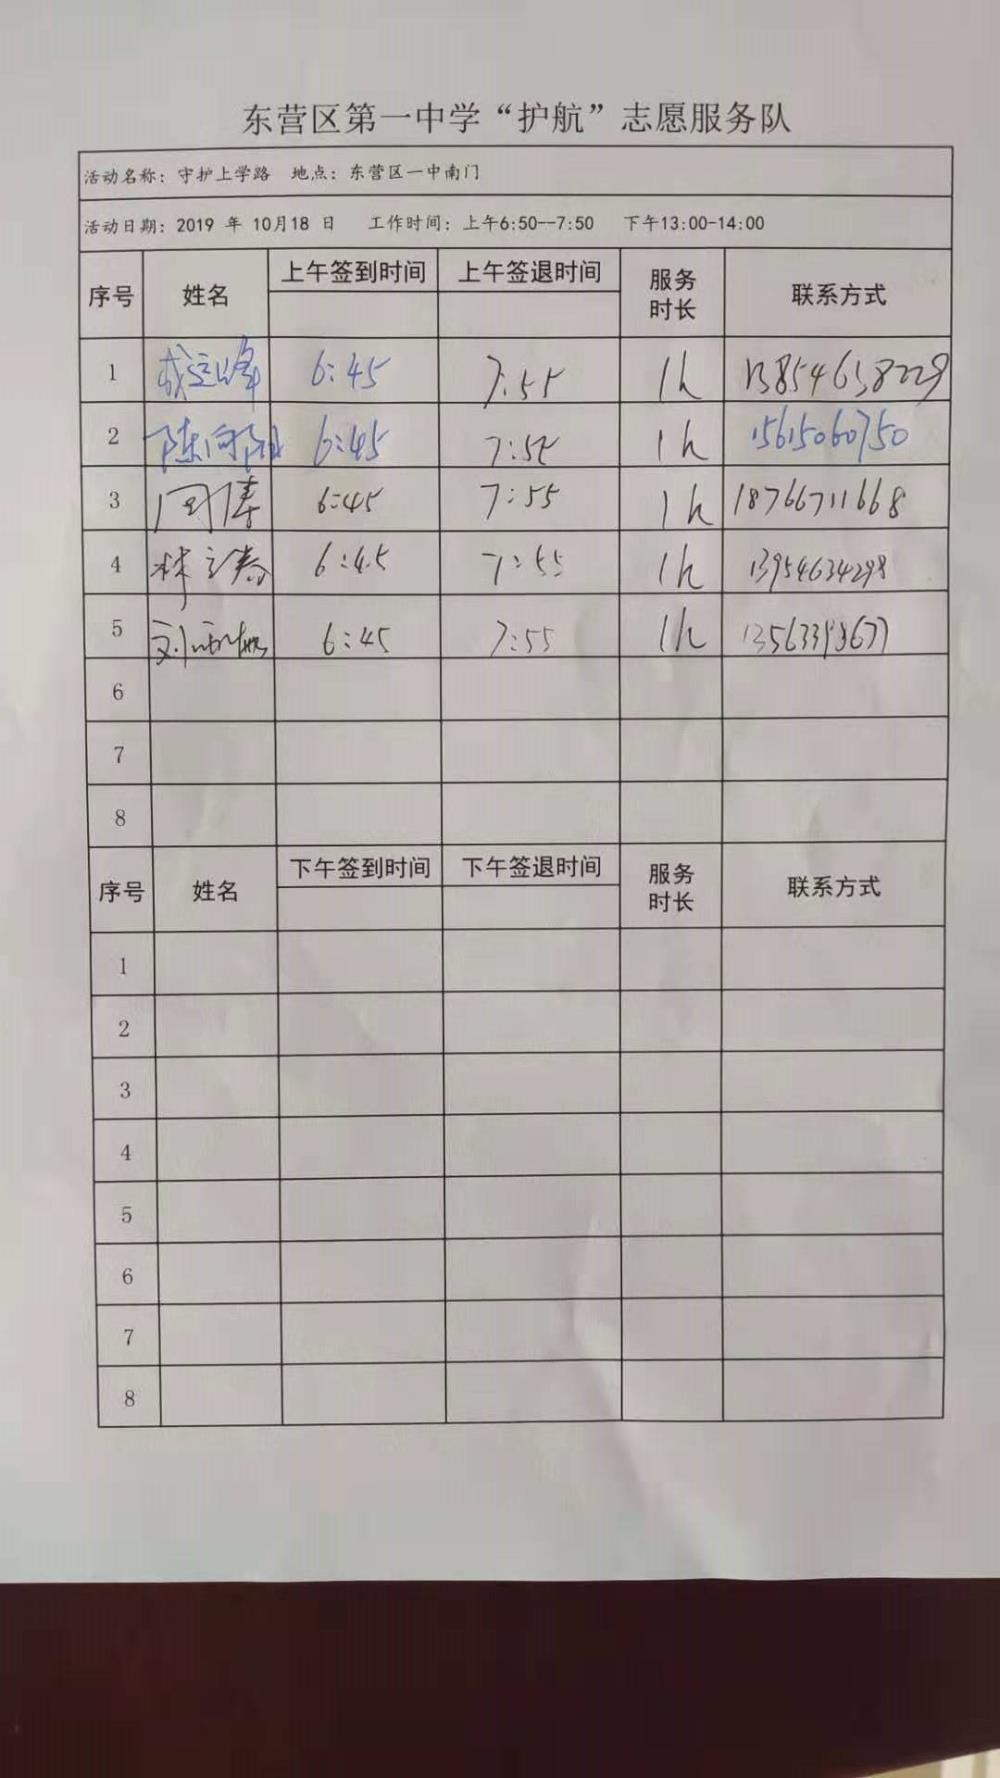 东营区第一中学“护航”志愿服务队
活动名称：守护上学路 地点：东营区一中南门
活动日期：2019 年 10月18 日 工作时间：上午6:50--7:50 下午13:00-14:00
序号 姓名 上午签到时间 上午签退时间 服务时长 联系方式
1 6:45 7:55 1h 13854658229
2 陈向阳 6:45 7:55 1h 15615060750
3 周涛 6:45 7:55 1h 18766711668
4 林立春 6:45 7:55 1h 13954634298
5 6:45 7:55 1h
6
7
8
序号 姓名 下午签到时间 下午签退时间 服务时长 联系方式
1
2
3
4
5
6
7
8